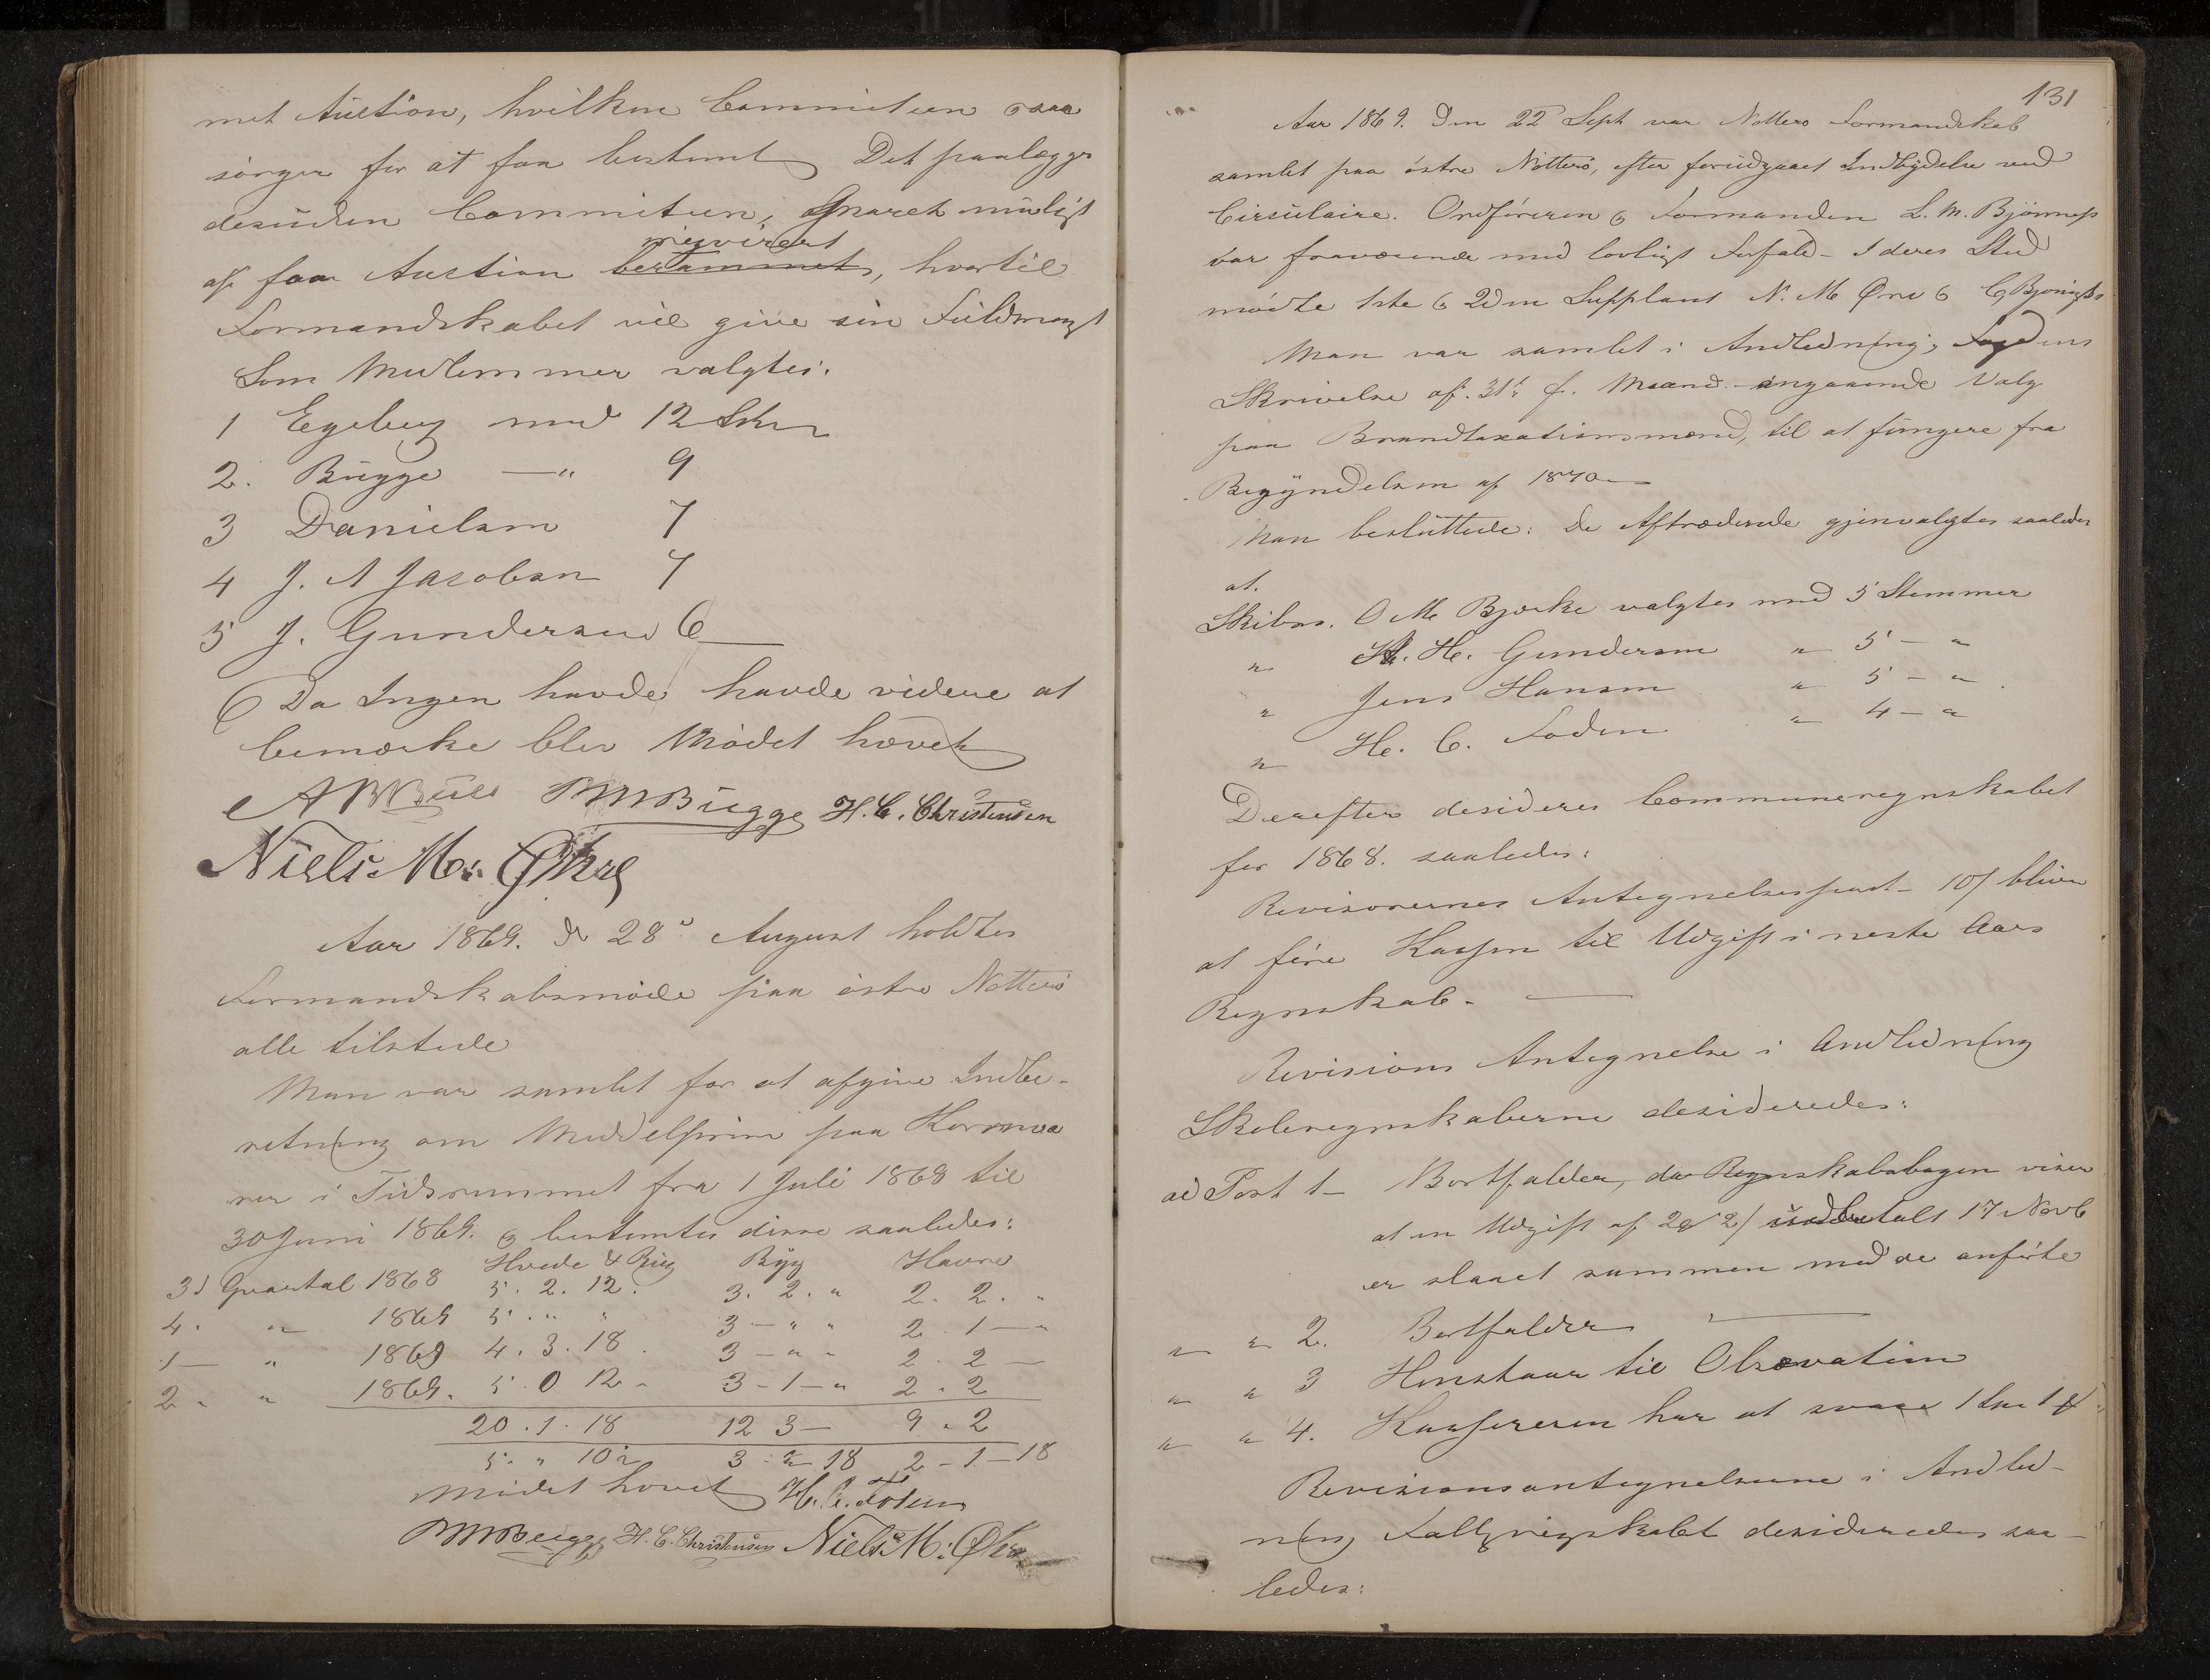 met Auction, hvilken Committeen osaa
sörger for at faa bestemt Det paalægges
desuden Committeen, snarest muligt
reqvireret
at faa Auction berammet, hvortil
Formandskabet vil give sin Fuldmagt
Som Medlemmer valgtes:
1 Egeberg med 12 Stem
2. Bugge —"— 9
3 Danielsen 7
4 J. A Jacobsen 7
5 J. Gundersen 6
Da Ingen havde havde videre at
bemærke blev Mödet hævet
A B Bull MMBugge H. C. Christensen
Niels M: Øhre
Aar 1869. d 28de August holdtes
Formandskabsmöde paa östre Nötterö
alle tilstede
Man var samlet for at afgive Indbe-
retning om Middelprisen paa Kornva
rer i Tidsrummet fra 1 Juli 1868 til
30 Juni 1869. og bestemtes disse saaledes:
Hvede & Rug Byg Havre
3d Qvartal 1868 5. 2. 12. 3. 2. " 2. 2. "
4. " 1868 5. " " 3 - " " 2. 1 - "
1 - " 1869 4. 3. 18. 3 - " - 2. 2 -
2. " 1869. 5. 0 12 - 3 - 1 - " 2. 2
20. 1. 18 12 3 - 9. 2
5. " 10½ 3. " 18 2 - 1 - 18
Mödet hævet H. C. Foden
MMBugge H. C. Christensen Niels M: Øhre
131
Aar 1869. Den 22 Sept var Nötterö Formandskab
samlet paa östre Nötterö, efter forudgaaet Indbydelse ved
Circulaire. Ordföreren og Formanden L. M. Bjönness
var fraværende med lovligt Forfald - I deres Sted
mödte 1ste og 2den Supplant N. M Øre og C Bjönness
Man var samlet i Andledning, Fogdens
Skrivelse af 31te f. Maaned angaaende Valg
paa Brandtaxationsmænd, til at fungere fra
Begyndelsen af 1870 —
Man besluttede: De Aftrædende gjenvalgtes saaledes
at.
Skibrs. O M Bjerke valgtes med 5 Stemmer
" H. H. Gundersen " 5 - "
" Jens Hansen " 5 - "
" H. C. Foden " 4 - "
Derefter desideres Communeregnskabet
for 1868. saaledes:
Revisorernes Antegnelsespost - 10/ bliver
at före Kassen til Udgift i neste Aars
Regnskab. —
Revisions Antegnelse i Andledning
Skoleregnskaberne desideredes:
ad Post 1 - Bortfalder, da Regnskabsbogen viser
at en Udgift af 2 2/ udbetalt 17 Novb
er slaaet sammen med de anförte
" " 2. Bortfalder —
" " 3 Henstaar til Observation
" " 4. Kassereren har at svare 1
Revisionsantegnelserne i Andled-
ning Fattigregnskabet desideredes saa-
ledes: